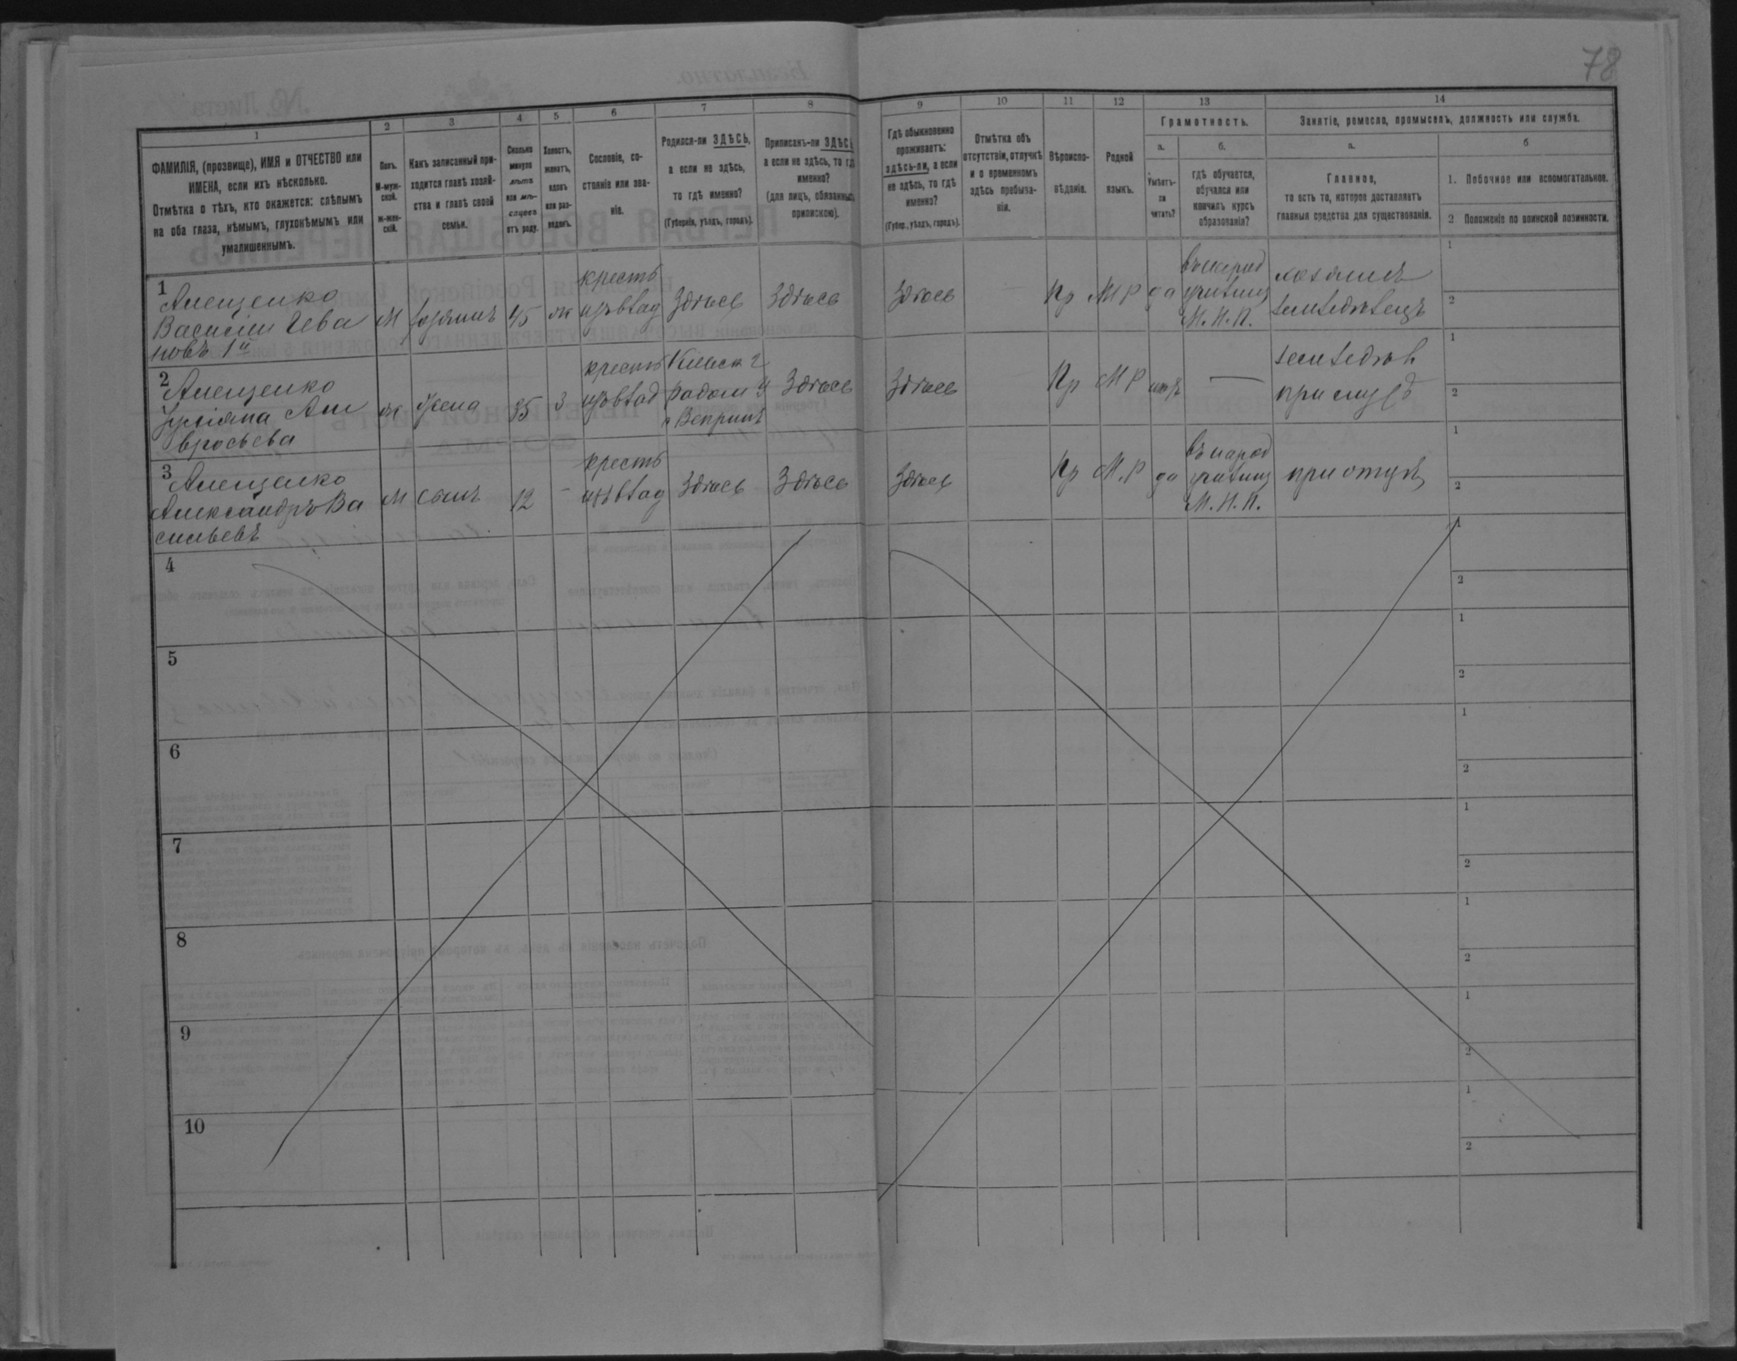 78
1
2
3
4
5
6
7
8
9
10
11
12
13
14
ФАМИЛІЯ, (прозвище), ИМЯ и ОТЧЕСТВО или
ИМЕНА, если ихъ нѣсколько.
Отмѣтка о тѣхъ, кто окажется: слѣпымъ
на оба глаза, нѣмымъ, глухонѣмымъ или
умалишеннымъ.
Полъ.
М-муж-
ской.
ж-жен-
скій.
Какъ записанный при-
ходится главѣ хозяй-
ства и главѣ своей
семьи.
Сколько
минуло
лѣтъ
или мѣ-
сяцевъ
отъ роду.
Холостъ,
женатъ,
вдовъ
или раз-
веденъ.
Сословіе, со-
стояніе или зва-
ніе.
Родился-ли ЗДѢСЬ,
а если не здѣсь,
то гдѣ именно?
(Губернія, уѣздъ, городъ).
Приписанъ-ли ЗДѢСЬ,
а если не здѣсь, то гдѣ
именно?
(для лицъ, обязанныхъ
припискою).
Гдѣ обыкновенно
проживаетъ:
здѣсь-ли, а если
не здѣсь, то гдѣ
именно?
(Губер., уѣздъ, городъ).
Отмѣтка объ
отсутствіи, отлучкѣ
и о временномъ
здѣсь пребыва-
ніи.
Вѣроиспо-
вѣданіе.
Родной
языкъ.
Грамотность.
а.
Умѣетъ-
ли
читать?
б.
гдѣ обучается,
обучался или
кончилъ курсъ
образованія?
Занятіе, ремесло, промыселъ, должность или служба.
а.
Главное,
то есть то, которое доставляетъ
главныя средства для существованія.
б
1. Побочное или вспомогательное.
2 Положеніе по воинской повинности.
1
Алещенко
Василіи Ива
новъ 1й
М
хозяинъ
45
ж
крестья
изъ влад
Здѣсь
Здѣсь
Здѣсь
Пр
МР
да
въ народ
училищ
М.Н.П.
хозяинъ
земледѣлецъ
1
2
2
Алещенко
ж
жена
35
З
крестья
изъ влад
Здѣсь
Здѣсь
Пр
МР
нѣтъ
—
земледѣл
при мужѣ
1
2
3
Алещенко
Александръ Ва
сильевъ
М
сынъ
12
-
крестья
изъ влад
Здѣсь
Здѣсь
Здѣсь
Пр
М.Р
да
въ народ
училищ
М.Н.П.
при отцѣ
1
2
4
1
2
5
1
2
6
1
2
7
1
2
8
1
2
9
1
2
10
1
2